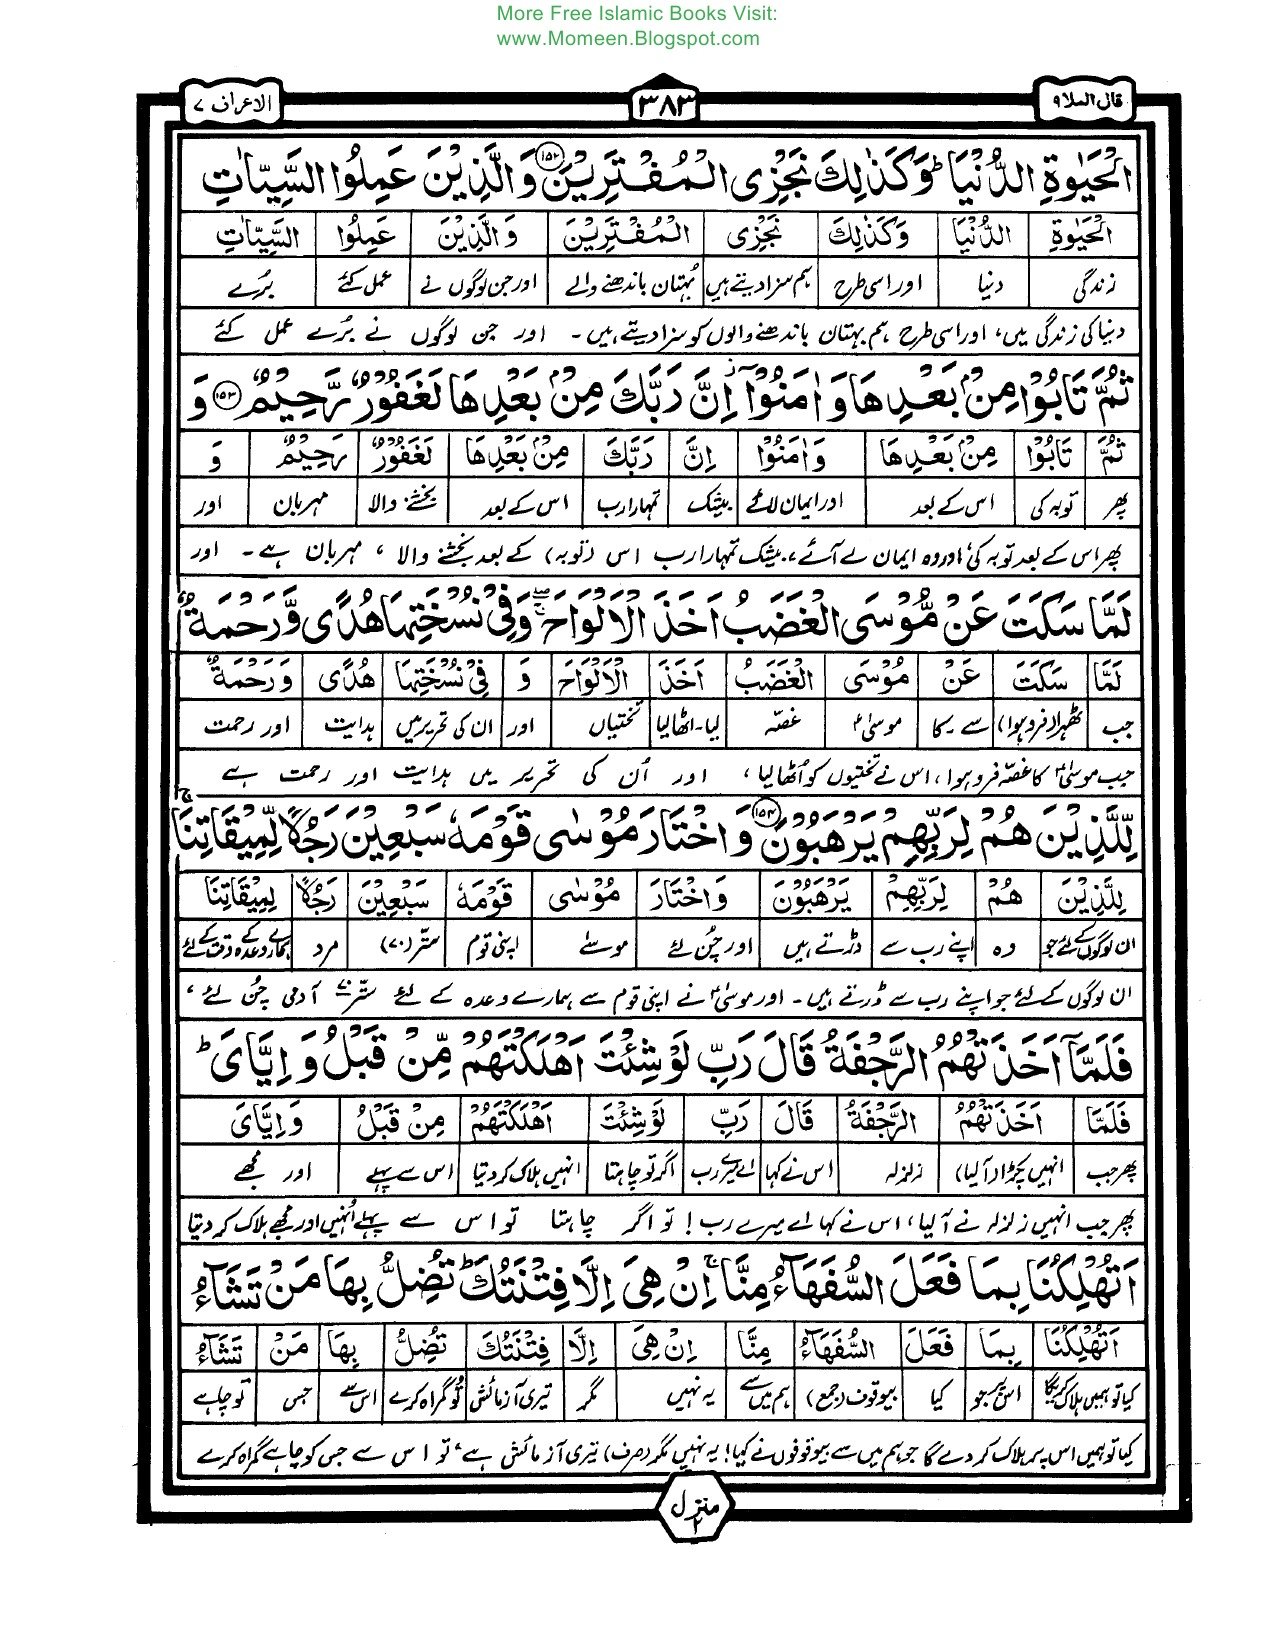 More Free Islamic Books Visit:
www.Momeen.Blogspot.com
قال الملا ٩ ٣٨٣ الاعراف ٧
الْحَيٰوةِ الدُّنْيَا ؕ وَكَذٰلِكَ نَجْزِى الْمُفْتَرِيْنَ ۝۱۵۲ وَالَّذِيْنَ عَمِلُوا السَّيِّاٰتِ
الْحَيٰوةِ الدُّنْيَا وَكَذٰلِكَ نَجْزِى الْمُفْتَرِيْنَ وَالَّذِيْنَ عَمِلُوا السَّيِّاٰتِ
زندگی دنیا اور اسی طرح ہم سزا دیتے ہیں بہتان باندھنے والے اور جن لوگوں نے عمل کئے بُرے
دنیا کی زندگی میں، اور اسی طرح ہم بہتان باندھنے والوں کو سزا دیتے ہیں۔ اور جن لوگوں نے بُرے عمل کئے
ثُمَّ تَابُوْا مِنْۢ بَعْدِهَا وَاٰمَنُوْۤا ز اِنَّ رَبَّكَ مِنْۢ بَعْدِهَا لَغَفُوْرٌ رَّحِيْمٌ ۝۱۵۳ وَ
ثُمَّ تَابُوْا مِنْۢ بَعْدِهَا وَاٰمَنُوْا اِنَّ رَبَّكَ مِنْۢ بَعْدِهَا لَغَفُوْرٌ رَحِيْمٌ وَ
پھر توبہ کی اس کے بعد اور ایمان لائے بیشک تمہارا رب اس کے بعد بخشنے والا مہربان اور
پھر اس کے بعد توبہ کی اور وہ ایمان لے آئے، بیشک تمہارا رب اس (توبہ) کے بعد بخشنے والا ، مہربان ہے۔ اور
لَمَّا سَكَتَ عَنْ مُّوْسَى الْغَضَبُ اَخَذَ الْاَلْوَاحَ ۚ وَفِىْ نُسْخَتِهَا هُدًى وَّرَحْمَةٌ
لَمَّا سَكَتَ عَنْ مُوْسَى الْغَضَبُ اَخَذَ الْاَلْوَاحَ وَ فِىْ نُسْخَتِهَا هُدًى وَرَحْمَةٌ
جب ٹھہرا (فرو ہوا) سے ۔ کا موسیٰؑ غصّہ لیا۔ اٹھا لیا تختیاں اور ان کی تحریر میں ہدایت اور رحمت
جب موسیٰؑ کا غصّہ فرو ہوا، اس نے تختیوں کو اُٹھا لیا، اور اُن کی تحریر میں ہدایت اور رحمت ہے
لِّلَّذِيْنَ هُمْ لِرَبِّهِمْ يَرْهَبُوْنَ ۝۱۵۴ وَاخْتَارَ مُوْسٰى قَوْمَهٗ سَبْعِيْنَ رَجُلًا لِّمِيْقَاتِنَا
لِلَّذِيْنَ هُمْ لِرَبِّهِمْ يَرْهَبُوْنَ وَاخْتَارَ مُوْسٰى قَوْمَهٗ سَبْعِيْنَ رَجُلًا لِمِيْقَاتِنَا
ان لوگوں کے لئے جو وہ اپنے رب سے ڈرتے ہیں اور چُن لئے موسےٰ اپنی قوم ستّر (۷۰) مرد ہمارے وعدہ وقت کے لئے
ان لوگوں کے لئے جو اپنے رب سے ڈرتے ہیں۔ اور موسیٰؑ نے اپنی قوم سے ہمارے وعدہ کے لئے ستّر آدمی چُن لئے ،
فَلَمَّاۤ اَخَذَتْهُمُ الرَّجْفَةُ قَالَ رَبِّ لَوْ شِئْتَ اَهْلَكْتَهُمْ مِّنْ قَبْلُ وَاِيَّاىَ ؕ
فَلَمَّا اَخَذَتْهُمُ الرَّجْفَةُ قَالَ رَبِّ لَوْ شِئْتَ اَهْلَكْتَهُمْ مِنْ قَبْلُ وَاِيَّاىَ
پھر جب انہیں پکڑا (آ لیا) زلزلہ اس نے کہا اے میرے رب اگر تو چاہتا انہیں ہلاک کر دیتا اس سے پہلے اور مجھے
پھر جب انہیں زلزلہ نے آ لیا، اس نے کہا اے میرے رب! تو اگر چاہتا تو اس سے پہلے اُنہیں اور مجھے ہلاک کر دیتا
اَتُهْلِكُنَا بِمَا فَعَلَ السُّفَهَآءُ مِنَّا ۚ اِنْ هِىَ اِلَّا فِتْنَتُكَ ؕ تُضِلُّ بِهَا مَنْ تَشَآءُ
اَتُهْلِكُنَا بِمَا فَعَلَ السُّفَهَآءُ مِنَّا اِنْ هِىَ اِلَّا فِتْنَتُكَ تُضِلُّ بِهَا مَنْ تَشَآءُ
کیا تو ہمیں ہلاک کریگا اس پر جو کیا بیوقوف (جمع) ہم میں سے یہ نہیں مگر تیری آزمائش تو گمراہ کرے اس سے جس تو چاہے
کیا تو ہمیں اس پر ہلاک کر دے گا جو ہم میں سے بیوقوفوں نے کیا! یہ نہیں مگر (صرف) تیری آزمائش ہے، تو اس سے جس کو چاہے گمراہ کرے
منزل ٢